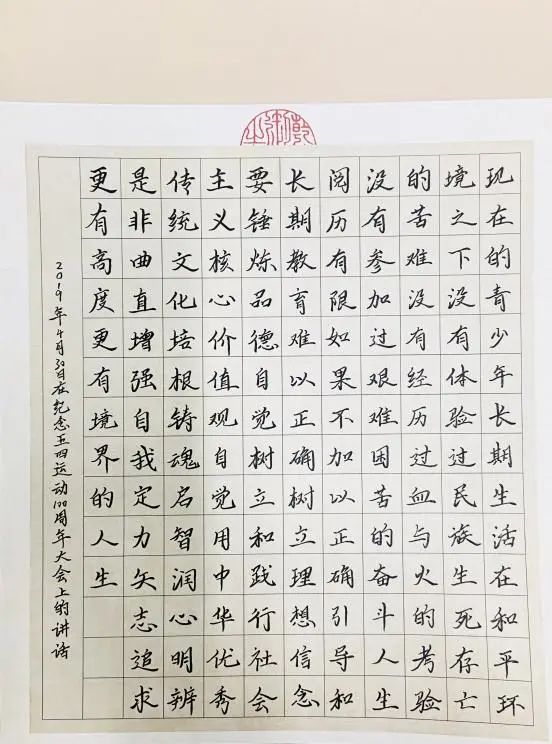 现在的青少年长期生活在和平环
境之下没有体验过民族生死存亡
的苦难没有经历过血与火的考验
没有参加过艰难困苦的奋斗人生
阅历有限如果不加以正确引导和
长期教育难以正确树立理想信念
要锤炼品德自觉树立和践行社会
主义核心价值观自觉用中华优秀
传统文化培根铸魂启智润心明辨
是非曲直增强自我定力矢志追求
更有高度更有境界的人生
2019年4月30日在纪念五四运动100周年大会上的讲话